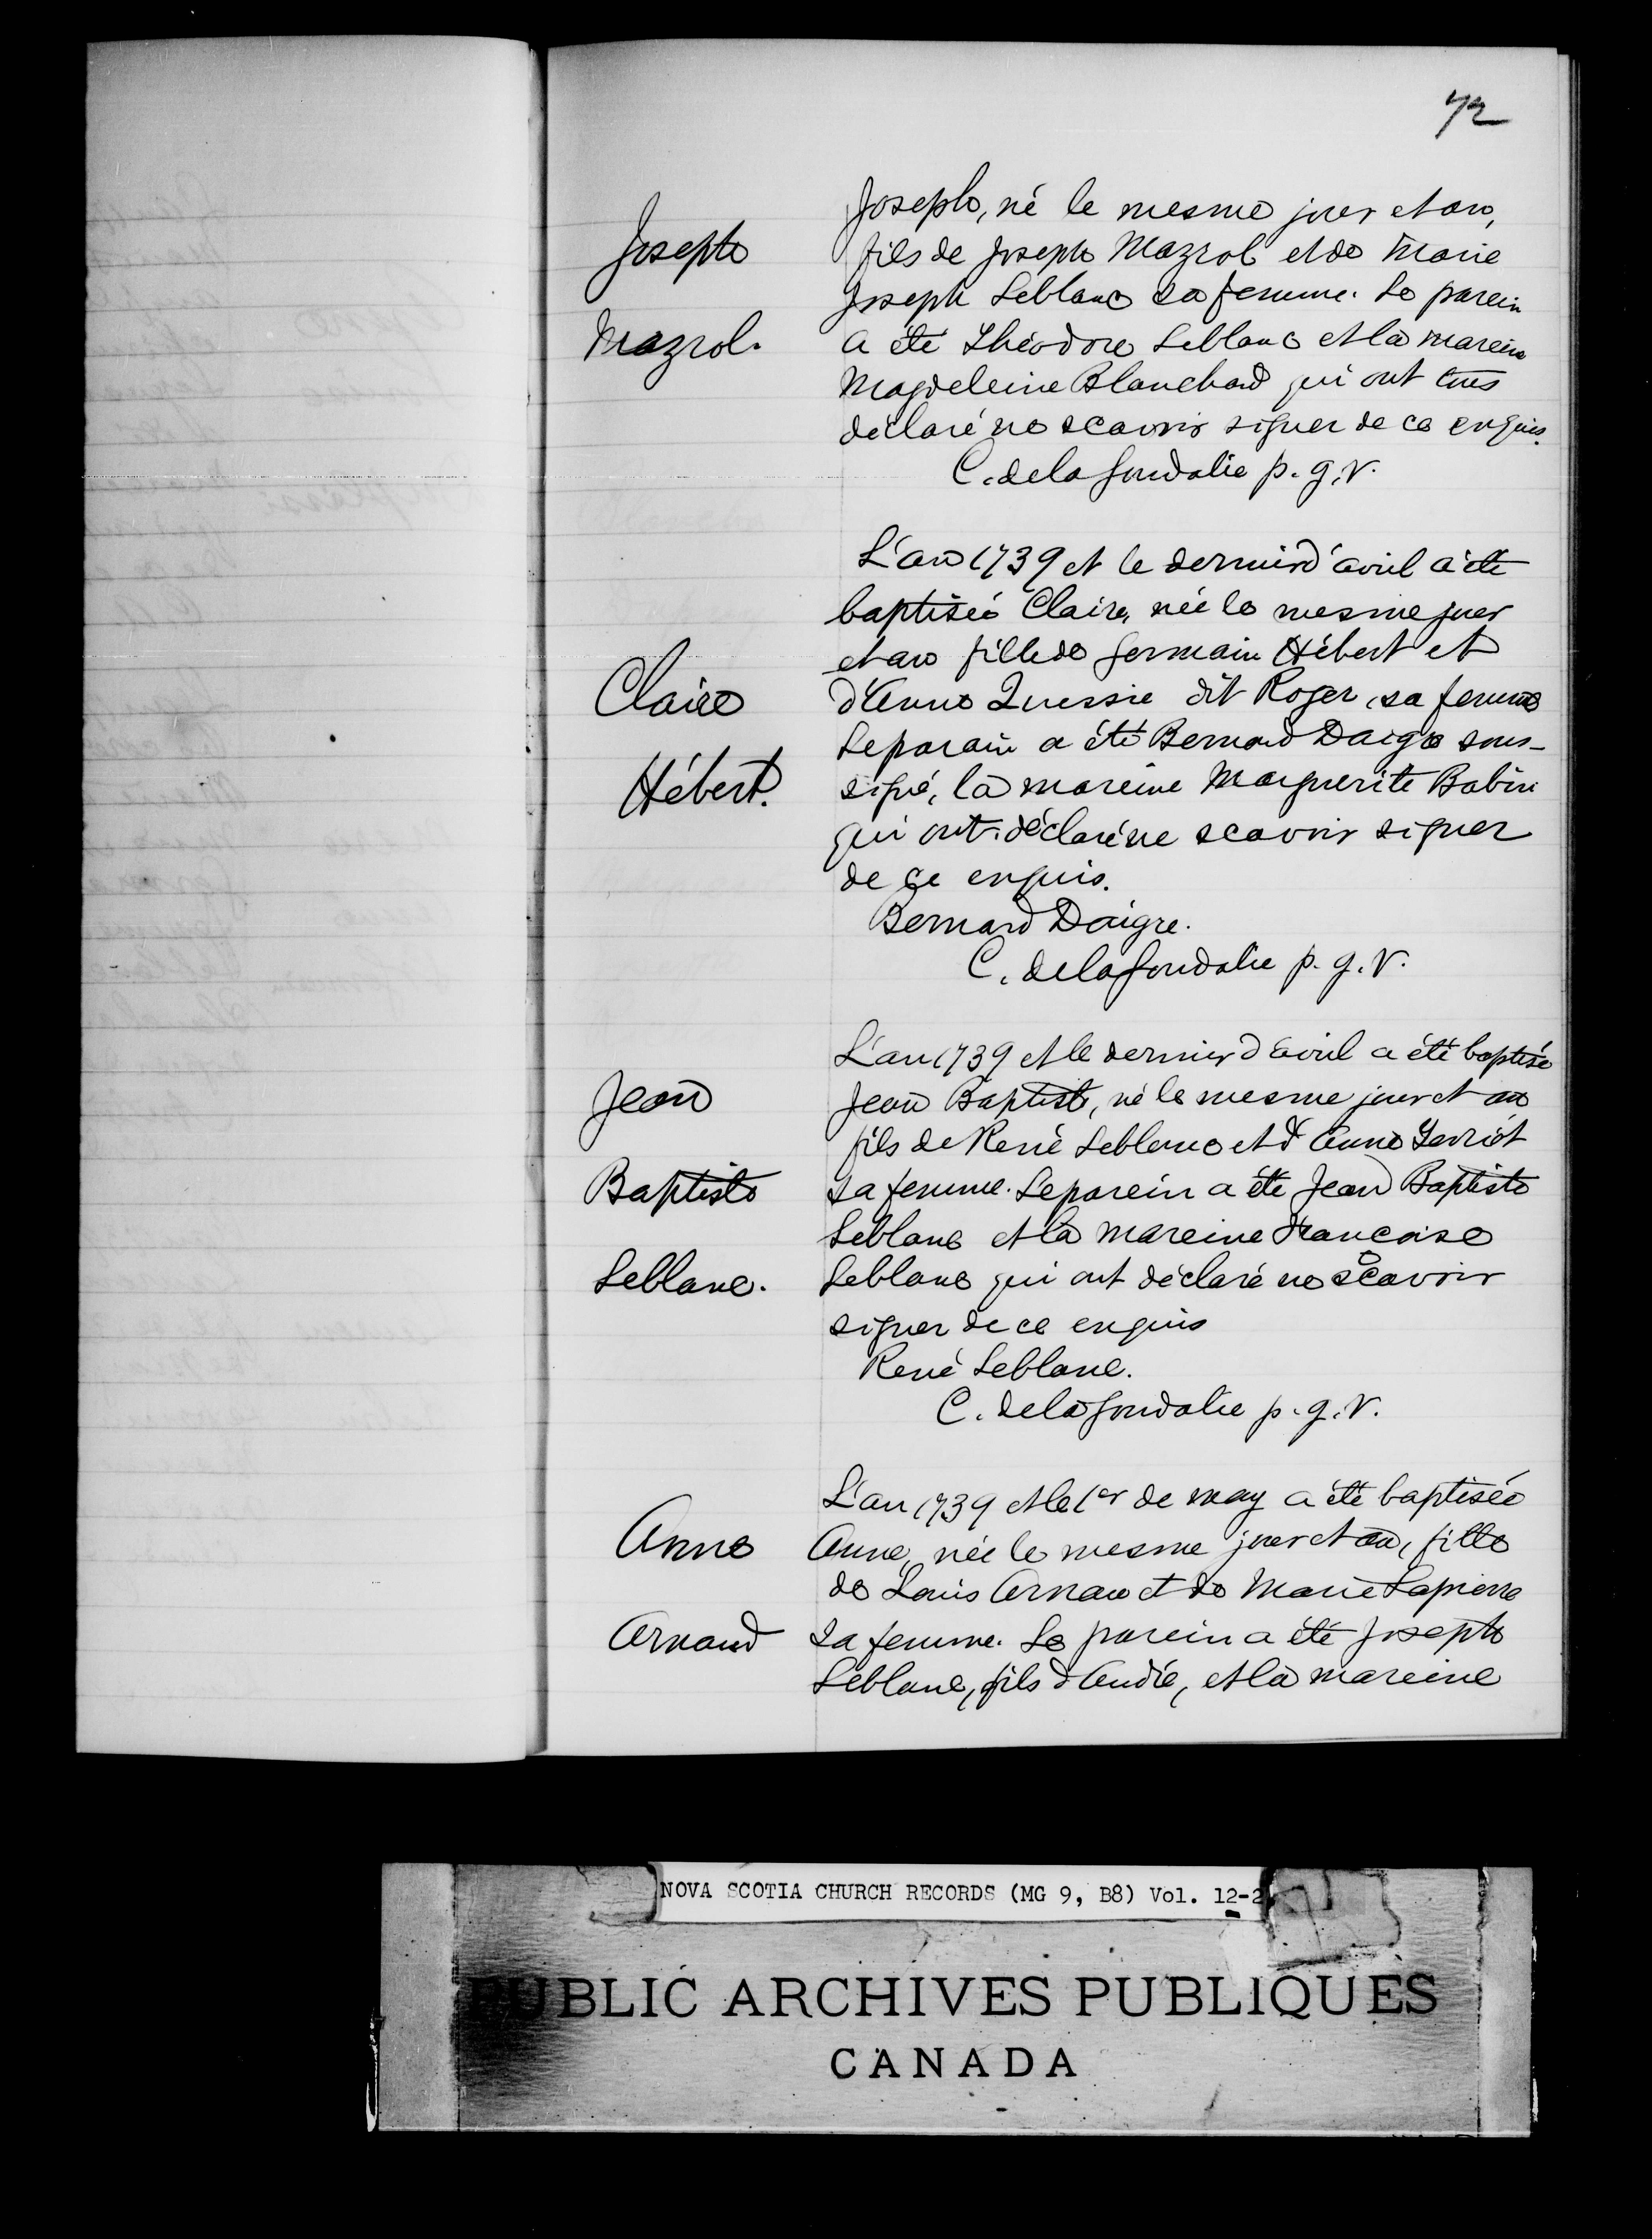 72
Joseph, né le mesme jour et an,
Joseph
fils de Joseph Mazrol et de Marie
Joseph Leblanc sa femme. Le parein
Mazrol.
a été Théodore Leblanc et la mareine
Magdeleine Blanchard qui ont tous
déclaré ne scavoir signer de ce enquis.
C. de la Goudalie p. g. v.
L'an 1739 et le dernier d'avril a été
baptisée Claire, née le mesme jour
et an fille de Germain Hébert et
Claire
d'Anne Quessie dit Roger, sa femme
Le parain a été Bernard Daigre sous-
Hébert.
signé, la mareine Marguerite Babin
qui ont déclaré ne scavoir signer
de ce enquis.
Bernard Daigre.
C. de la Goudalie p. g. v.
L'an 1739 et le dernier d'avril a été baptisé
Jean
Jean Baptiste, né le mesme jour et an
fils de René Leblanc et d'Anne Terriot
Baptiste
sa femme. Le parein a été Jean Baptiste
Leblanc et la mareine Francoise
Leblanc.
Leblanc qui ont déclaré ne scavoir
signer de ce enquis
René Leblanc.
C. de la Goudalie p. g. v.
L'an 1739 et le 1er de may a été baptisée
Anne
Anne, née le mesme jour et an, fille
de Louis Arnau et de Marie Lapierre
Arnaud
sa femme. Le parein a été Joseph
Leblanc, fils d'André, et la mareine
NOVA SCOTIA CHURCH RECORDS (MG 9, B8) Vol. 12-2
PUBLIC ARCHIVES PUBLIQUES
CANADA